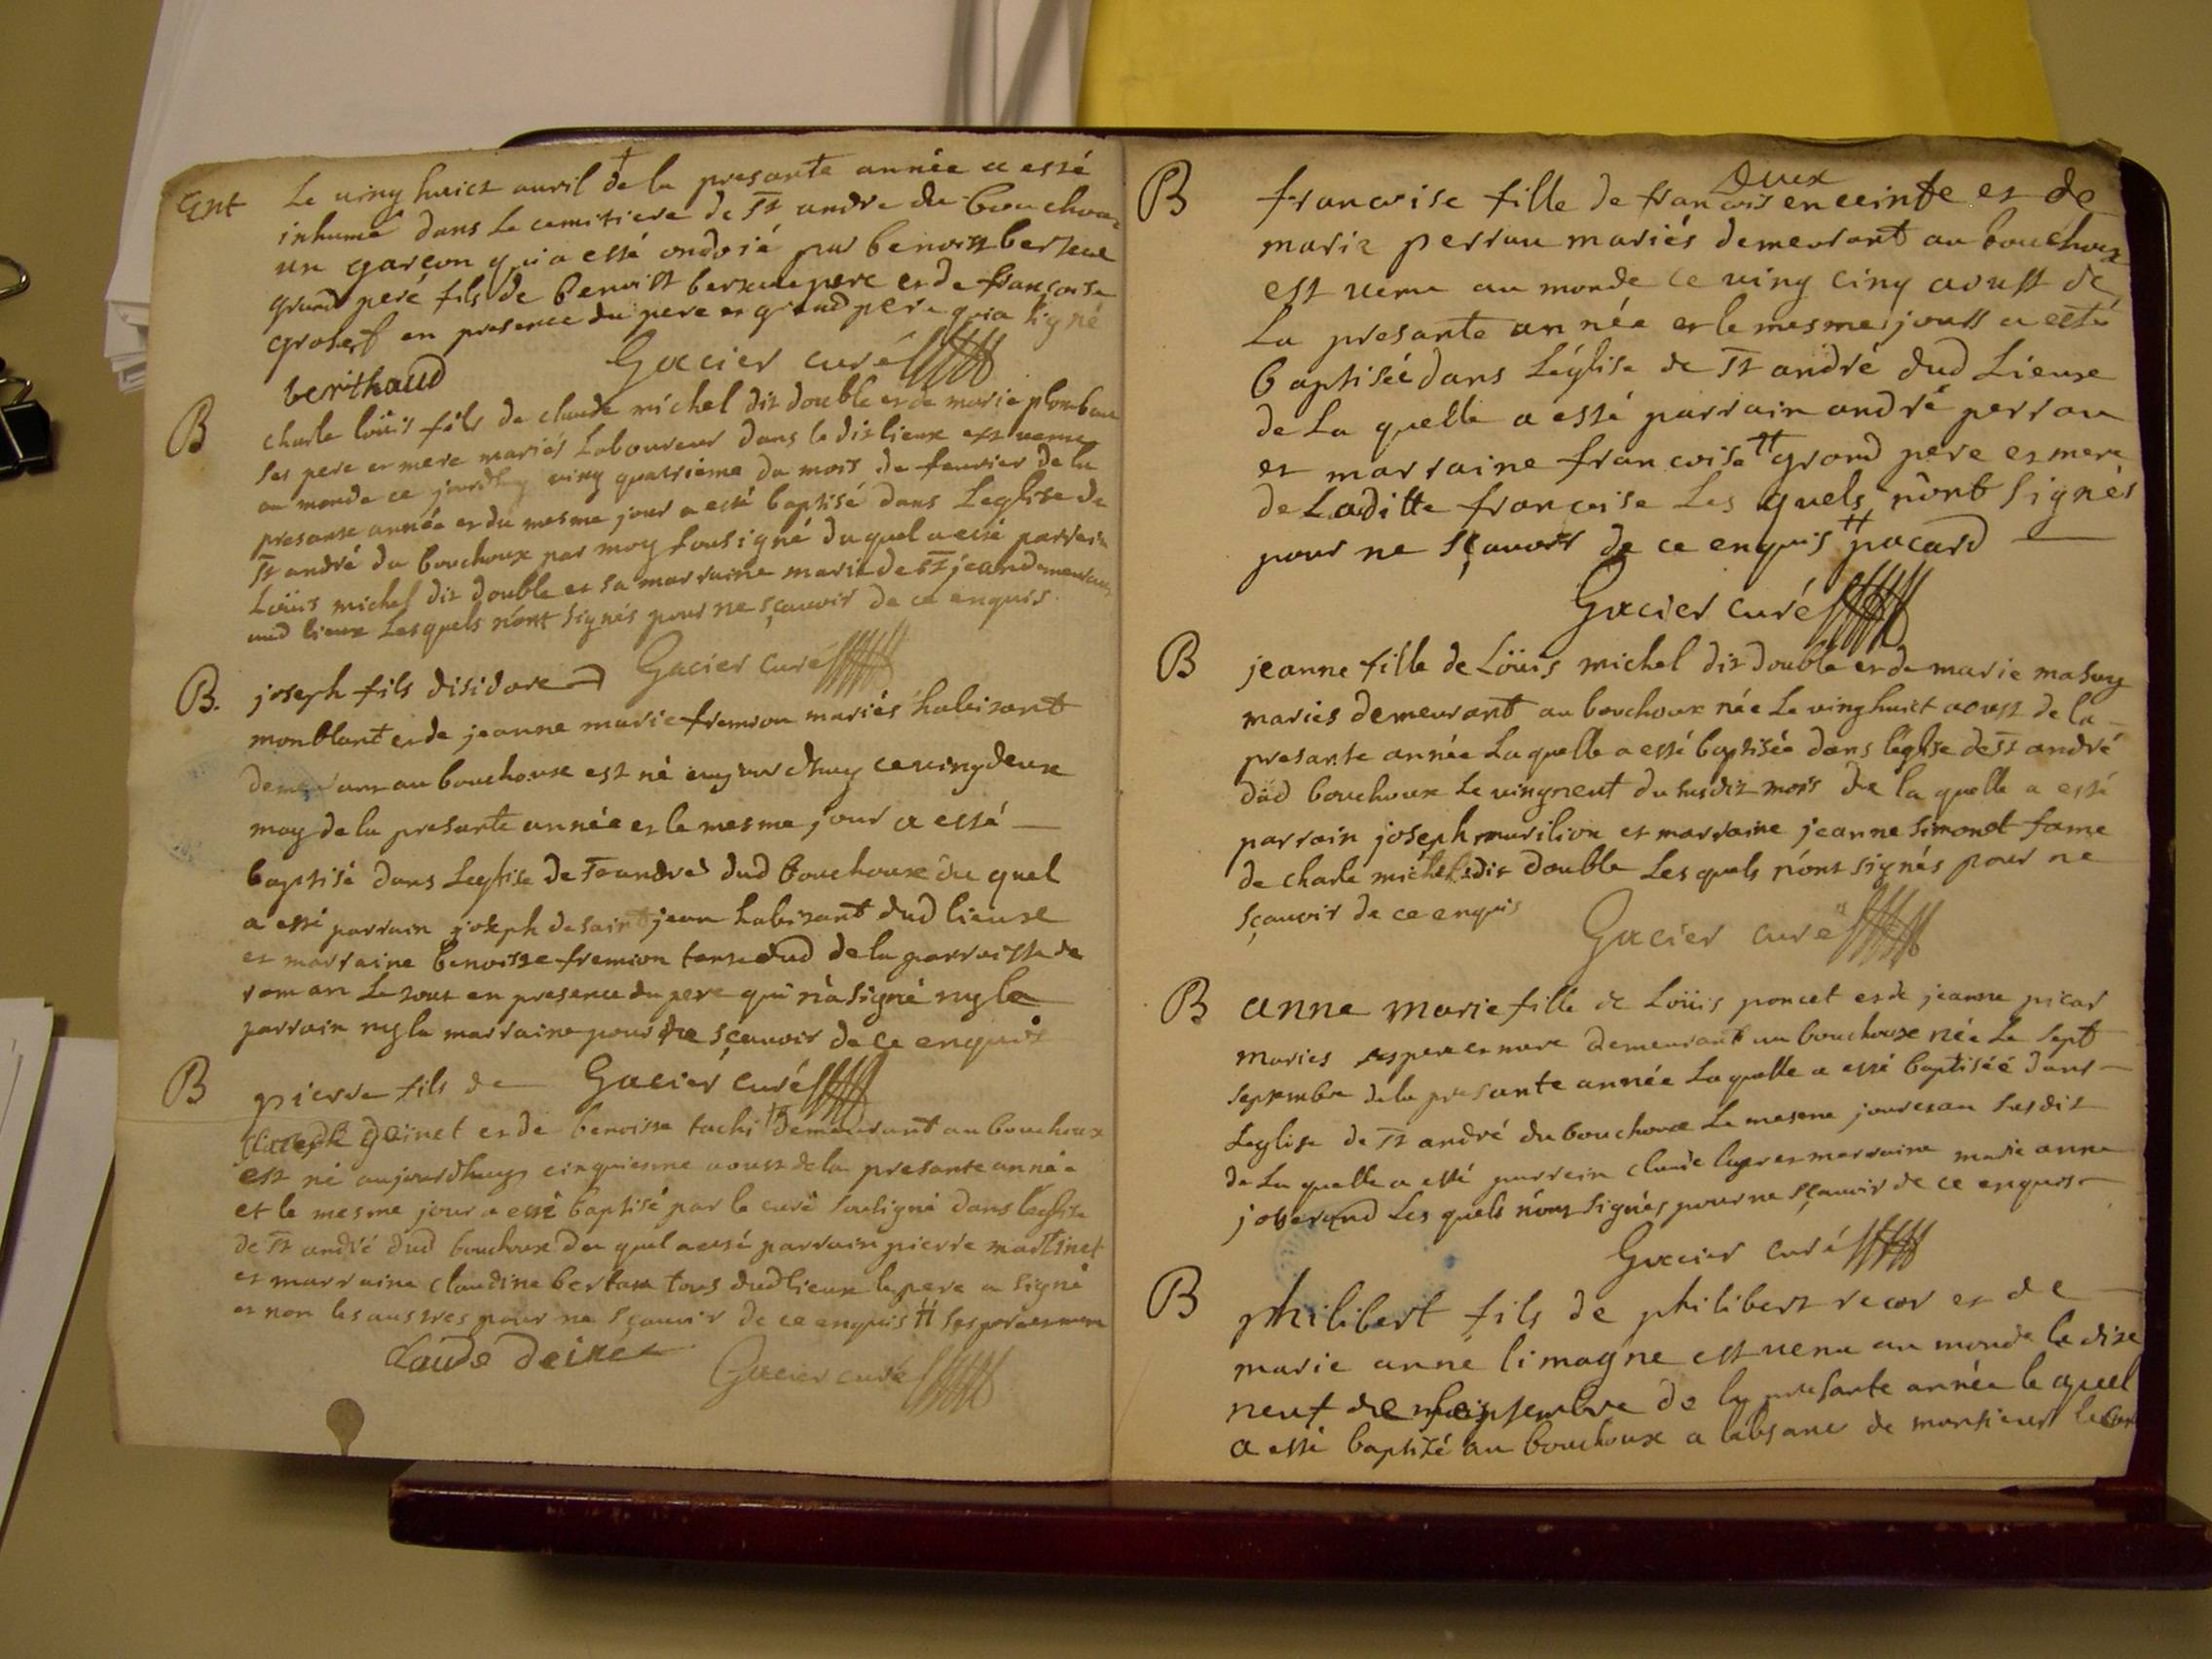 Ent Le ving huict auril de la presante année a essé
inhumé dans Le cemitiere de St andre du bouchoux
un garçon qui a essé ondoié par benoist
grand pere fils de benoist pere et de francoise
en presence du pere et grand pere qui a signé
berthaud Gacier curé
B charle loüis fils de claude michel dit double et de marie
ses pere et mere mariés Laboureur dans le dit lieux est uenu
au monde ce jourdhuy ving quatrieme du mois de feurier de la
presante année et du mesme jour a essé baptisé dans Leglise de
St andré du bouchoux par moy sousigné du quel a essé parrain
Loüis michel dit double et sa marraine marie de St jean demeurant
aud lieux Lesquels n'ont signés pour ne sçauoir de ce enquis
Gacier curé
B. joseph fils disidore
monblant et de jeanne marie fremion mariés habitant
demeurant au bouchoux est né aujourdhuy ce ving deux
may de la presante année et le mesme jour a essé
baptisé dans Leglise de St andré dud bouchoux du quel
a essé parrain joseph de saint jean habitant dud lieux
et marraine benoiste fremion de la parroisse de
roman Le tout en presence du pere qui n'a signé ny le
parrain ny la marraine pour ne sçauoir de ce enquis
B pierre fils de Gacier curé
et de benoiste tachi demeurant au bouchoux
est né aujourdhuy cinquiesme aoust de la presante année
et le mesme jour a essé baptisé par le curé sousigné dans leglise
de St andré dud bouchoux du quel a essé parrain pierre martinet
et marraine claudine tous dud lieux le pere a signé
et non les austres pour ne sçauoir de ce enquis # ses pere et mere
claude
Gacier curé
B francoise fille de francois enceinte et de
marie perrau mariés demeurant au bouchoux
est uenu au monde ce ving cinq aoust de
La presante année et le mesme jour a esté
baptiséé dans Léglise de St andré dud Lieux
de La quelle a essé parrain andré perrau
et marraine francoise # grand pere et mere
de Laditte francoise Les quels n'ont signés
pour ne sçauoir de ce enquis # pacard
Gacier curé
B jeanne fille de Loüis michel dit double et de marie masuy
mariés demeurant au bouchoux née Le ving huict aoust de la
presante année Laquelle a essé baptisée dans léglise de St andré
dud bouchoux Le vingneuf du susdit mois de la quelle a essé
parrain joseph et marraine jeanne simonet fame
de charle michel dit double Les quels n'ont signés pour ne
sçauoir de ce enquis
Gacier curé
B anne marie fille de Loüis poncet et de jeanne picar
mariés ses pere et mere demeurant au bouchoux née Le sept
septembre de la presante année Laquelle a essé baptiséé dans
Leglise de St andré du bouchoux Le mesme jour et an susdit
de La quelle a essé parrain claude et marraine marie anne
josserand Les quels n'ont signés pour ne sçauoir de ce enquis
Gacier curé
B philibert fils de philibert recor et de
marie anne limagne est uenu au monde le dixe
neuf de de la presante année le quel
a essé baptizé au bouchoux a labsance de monsieur